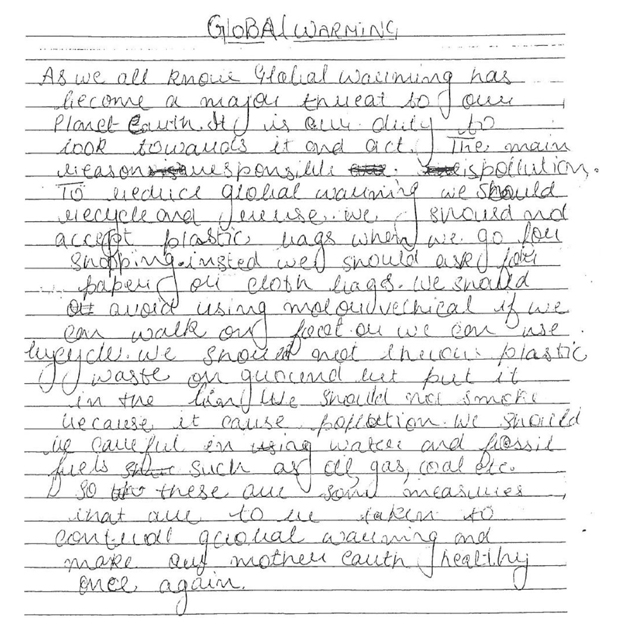 GloBAl WARMING
As we all know Global warming has
become a major threat to our
Planet Earth. It is our duty to
look towards it and act. The main
reason responsible is pollution.
To reduce global warming we should
recycle and reuse. we should not
accept plastic bags when we go for
shopping. insted we should ask for
paper or cloth bags. we should
avoid using motour vechical if we
can walk on foot or we can use
bycycle. we should not throw plastic
waste on ground but put it
in the bin. We should not smoke
because it cause pollution. We should
be careful in using water and fossil
fuels such as oil, gas, coal etc.
so these are some measures
that are to be taken to
control global warming and
make our mother earth healthy
once again.